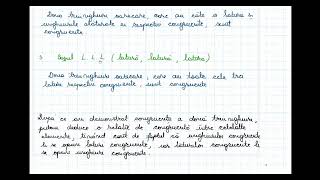 Două triunghiuri oarecare, care au câte o latură și
unghiurile alăturate ei respectiv congruente, sunt
congruente
3 Cazul L.L.L (latură, latură, latură)
Două triunghiuri oarecare, care au toate cele trei
laturi respectiv congruente, sunt congruente
După ce am demonstrat congruența a două triunghiuri,
putem deduce o relație de congruență între celelalte
elemente, ținând cont de faptul că unghiurilor congruente
li se opun laturi congruente, iar laturilor congruente li
se opun unghiuri congruente.